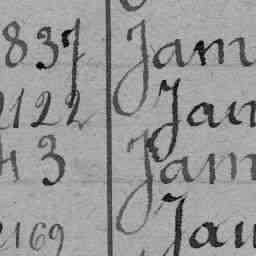 837 Jam
2122 Jan
43 Jam
2169 Jan